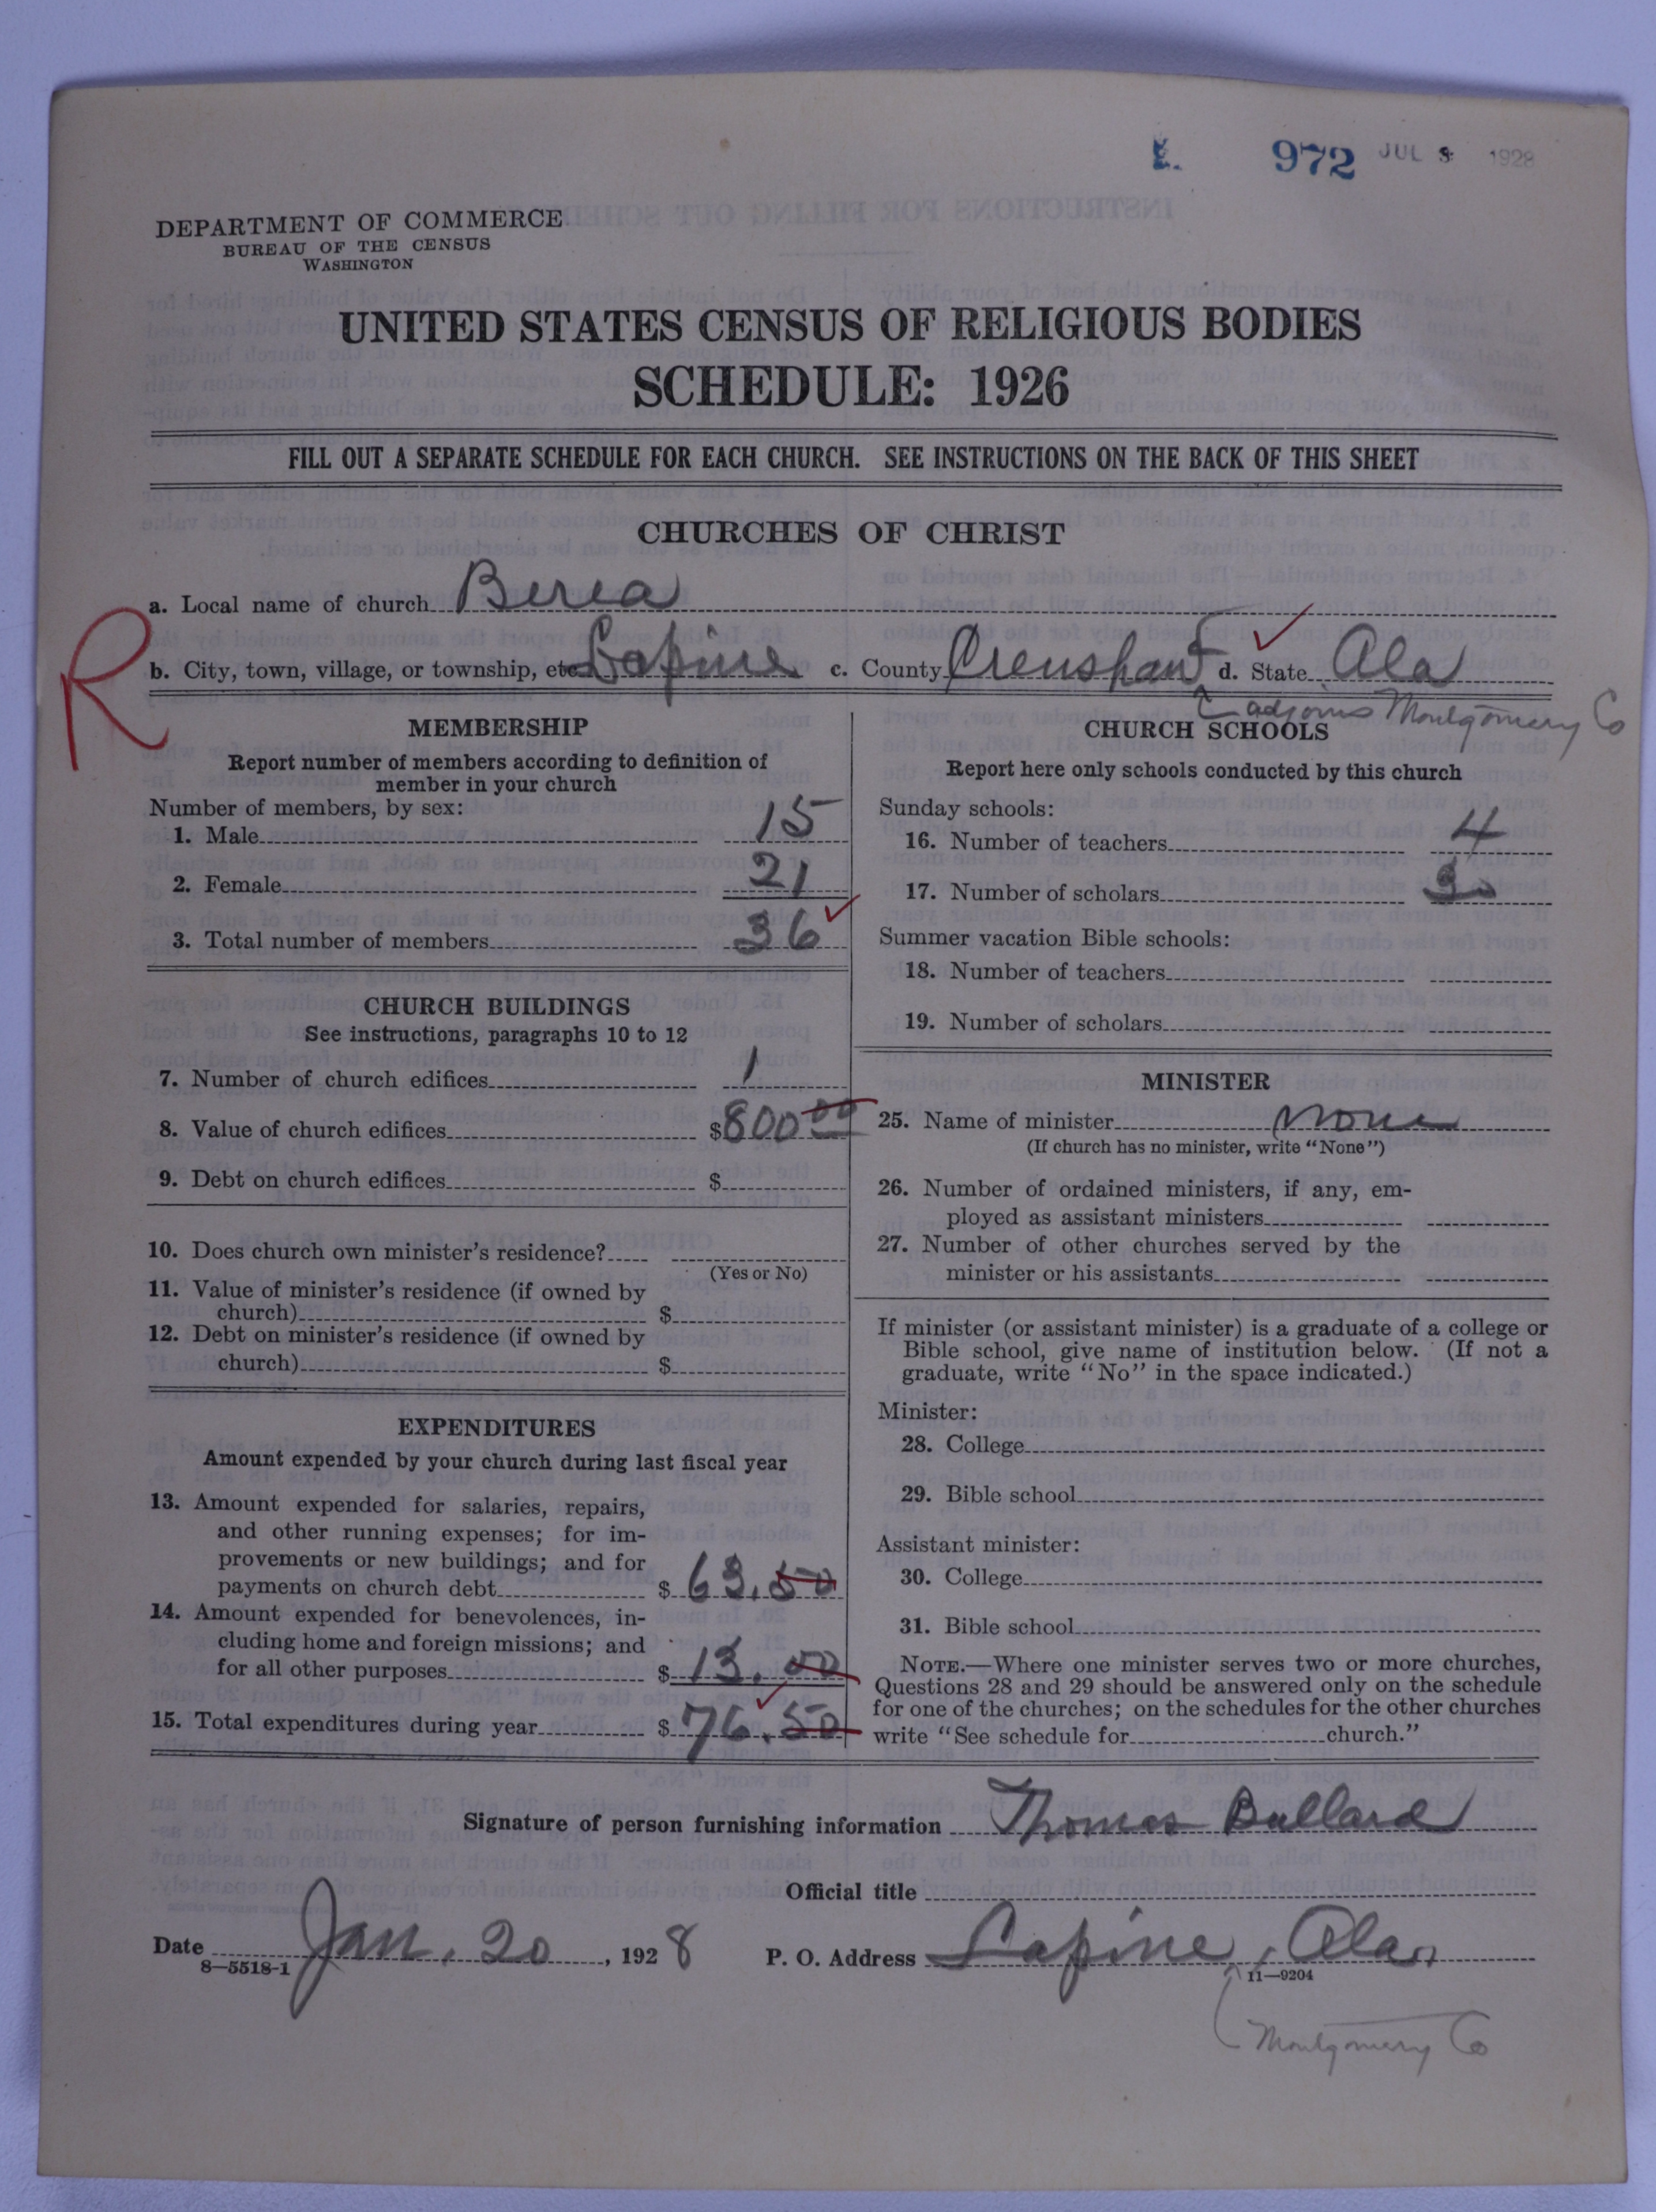 E. 972 JUL 3 1928
DEPARTMENT OF COMMERCE
BUREAU OF THE CENSUS
WASHINGTON
UNITED STATES CENSUS OF RELIGIOUS BODIES
SCHEDULE: 1926
FILL OUT A SEPARATE SCHEDULE FOR EACH CHURCH. SEE INSTRUCTIONS ON THE BACK OF THIS SHEET
CHURCHES OF CHRIST
R
a. Local name of church Berea
b. City, town, village, or township, etc. Lapine c. County Crenshaw d. State Ala
adjoins Montgomery Co
MEMBERSHIP
Report number of members according to definition of
member in your church
Number of members, by sex:
1. Male 15
2. Female 21
3. Total number of members 36
CHURCH BUILDINGS
See instructions, paragraphs 10 to 12
7. Number of church edifices 1
8. Value of church edifices $800 00
9. Debt on church edifices $
10. Does church own minister's residence?
(Yes or No)
11. Value of minister's residence (if owned by
church) $
12. Debt on minister's residence (if owned by
church) $
EXPENDITURES
Amount expended by your church during last fiscal year
13. Amount expended for salaries, repairs,
and other running expenses; for im-
provements or new buildings; and for
payments on church debt $ 63.50
14. Amount expended for benevolences, in-
cluding home and foreign missions; and
for all other purposes $ 13.00
15. Total expenditures during year $ 76.50
CHURCH SCHOOLS
Report here only schools conducted by this church
Sunday schools:
16. Number of teachers 4
17. Number of scholars 30
Summer vacation Bible schools:
18. Number of teachers
19. Number of scholars
MINISTER
25. Name of minister none
(If church has no minister, write "None")
26. Number of ordained ministers, if any, em-
ployed as assistant ministers
27. Number of other churches served by the
minister or his assistants
If minister (or assistant minister) is a graduate of a college or
Bible school, give name of institution below. (If not a
graduate, write "No" in the space indicated.)
Minister:
28. College
29. Bible school
Assistant minister:
30. College
31. Bible school
NOTE.—Where one minister serves two or more churches,
Questions 28 and 29 should be answered only on the schedule
for one of the churches; on the schedules for the other churches
write "See schedule for church."
Signature of person furnishing information Thomas Bullard
Official title
Date Jan. 20, 1928 P. O. Address Lapine, Ala.
8—5518-1 11—9204
Montgomery Co